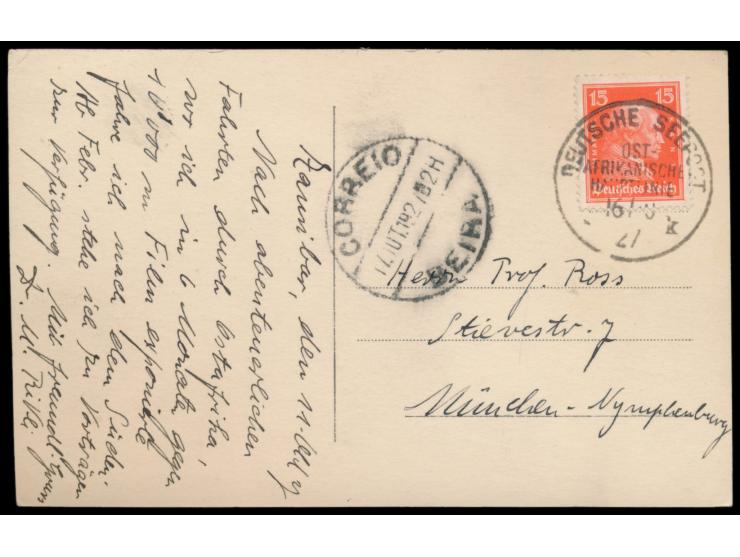 Zansibar, den 11. Okt 27
Nach abenteuerlichen
Fahrten durch Ostafrika,
wo ich in 6 Monaten gegen
10'000 m Film exponierte
fahre ich nach dem Süden.
Ab Febr. stehe ich zu Vorträgen
zur Verfügung. Mit freundl.
D. M. Rikli
CORREIO
17.OUT.1927 52H
BEIRA
15 15
Deutsches Reich
DEUTSCHE SEEPOST
OST-
AFRIKANISCHE
16
27
k
Herrn Prof. Ross
Stievestr. 7
München-Nymphenburg